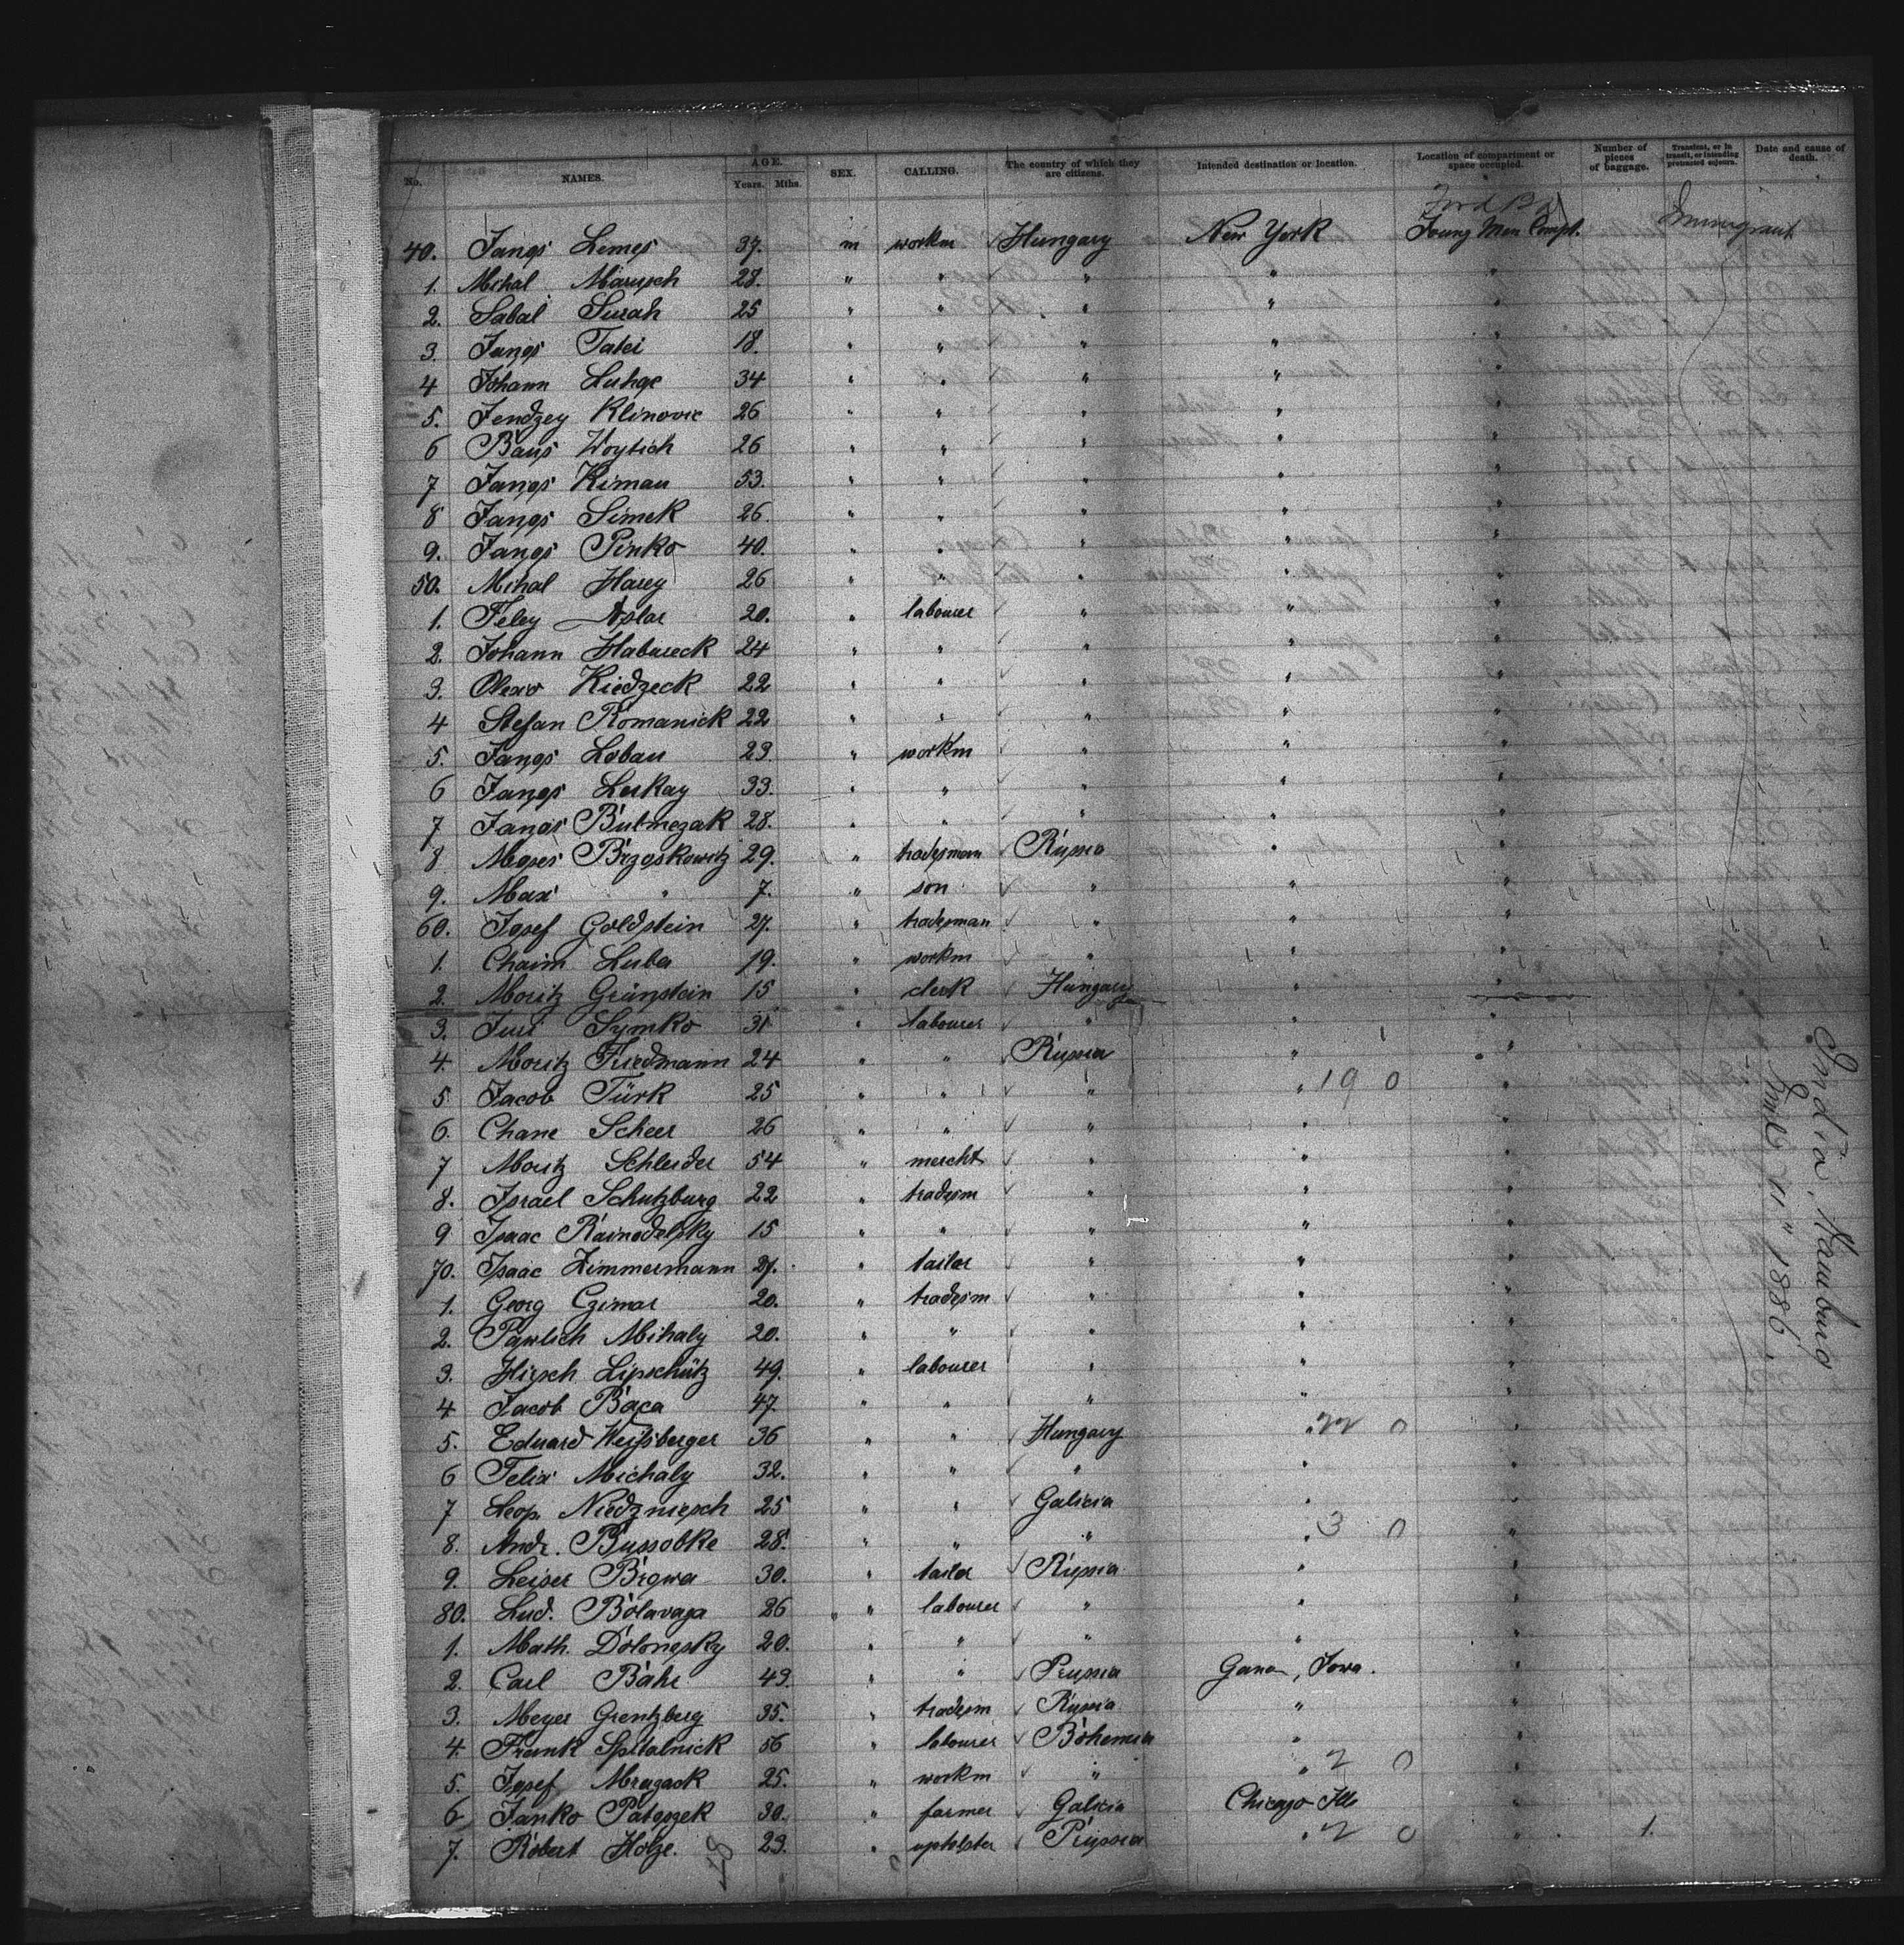 No. NAMES. AGE. Years. Mths. SEX. CALLING. The country of which they are citizens. Intended destination or location. Location of compartment or space occupied. Number of pieces of baggage. Transient, or in transit, or intending protracted sojourn. Date and cause of death.
40. Janos Lemes 37. m workm Hungary New York Young Men Compt. Immigrant
1. Mihal Marusch 28. " " " " "
2. Sabal Surah 25 " " " " "
3. Janos Tatei 18. " " " " "
4 Johann Luhge 34 " " " " "
5. Jendzey Klinovic 26 " " " " "
6 Baus Woytich 26 " " " " "
7 Janos Kiman 53. " " " " "
8 Janos Simek 26. " " " " "
9. Janos Pinko 40. " " " " "
50. Mihal Harey 26 " " " " "
1. Feley Aslar 20. " labourer " " "
2. Johann Habareck 24 " " " " "
3. Olexo Kiedzeck 22 " " " " "
4 Stefan Romanick 22 " " " " "
5. Janos Loban 23. " workm " " "
6 Janos Leskay 33. " " " " "
7 Janos Butmezak 28. " " " " "
8 Moses Brzoskowitz 29. " tradesman Russia " "
9. Max " 7. " son " " "
60. Josef Goldstein 27. " tradesman " " "
1. Chaim Luba 19. " workm " " "
2. Moritz Grünstein 15 " clerk Hungary " "
3. Juri Symko 31 " labourer " " "
4. Moritz Friedmann 24 " " Russia " "
5 Jacob Türk 25 " " " " 19 0 "
6. Chane Scheer 26 " " " " "
7 Moritz Schleider 54 " mercht " " "
8. Israel Schutzburg 22 " tradesm " " "
9 Isaac Rainodelsky 15 " " " " "
70. Isaac Zimmermann 27. " tailor " " "
1. Georg Czimar 20. " tradesm " " "
2. Pawlich Mihaly 20. " " " " "
3. Hirsch Lipschütz 49. " labourer " " "
4 Jacob Baca 47. " " " " "
5. Eduard Weissberger 36 " " Hungary " 22 0 "
6 Felix Michaly 32. " " " " "
7 Leop. Niedzniesch 25 " " Galicia " "
8. Andr. Bussobke 28. " " " " 3 0 "
9. Leiser Browa 30. " tailor Russia " "
80. Lud. Bolavaga 26 " labourer " " "
1. Math. Dolonesky 20. " " " " "
2. Carl Bahr 43. " " Prussia Gano, Iowa. "
3. Meyer Grentzberg 35. " tradesm Russia " "
4. Frank Spitalnick 56 " labourer Bohemia " "
5. Josef Mragack 25. " workm " " 2 0 "
6 Janko Pateszek 30. " farmer Galicia Chicago Ills "
7. Robert Holze. 23. " upholster Prussia " 2 0 " 1.
48
India, Hamburg
June 21" 1886.